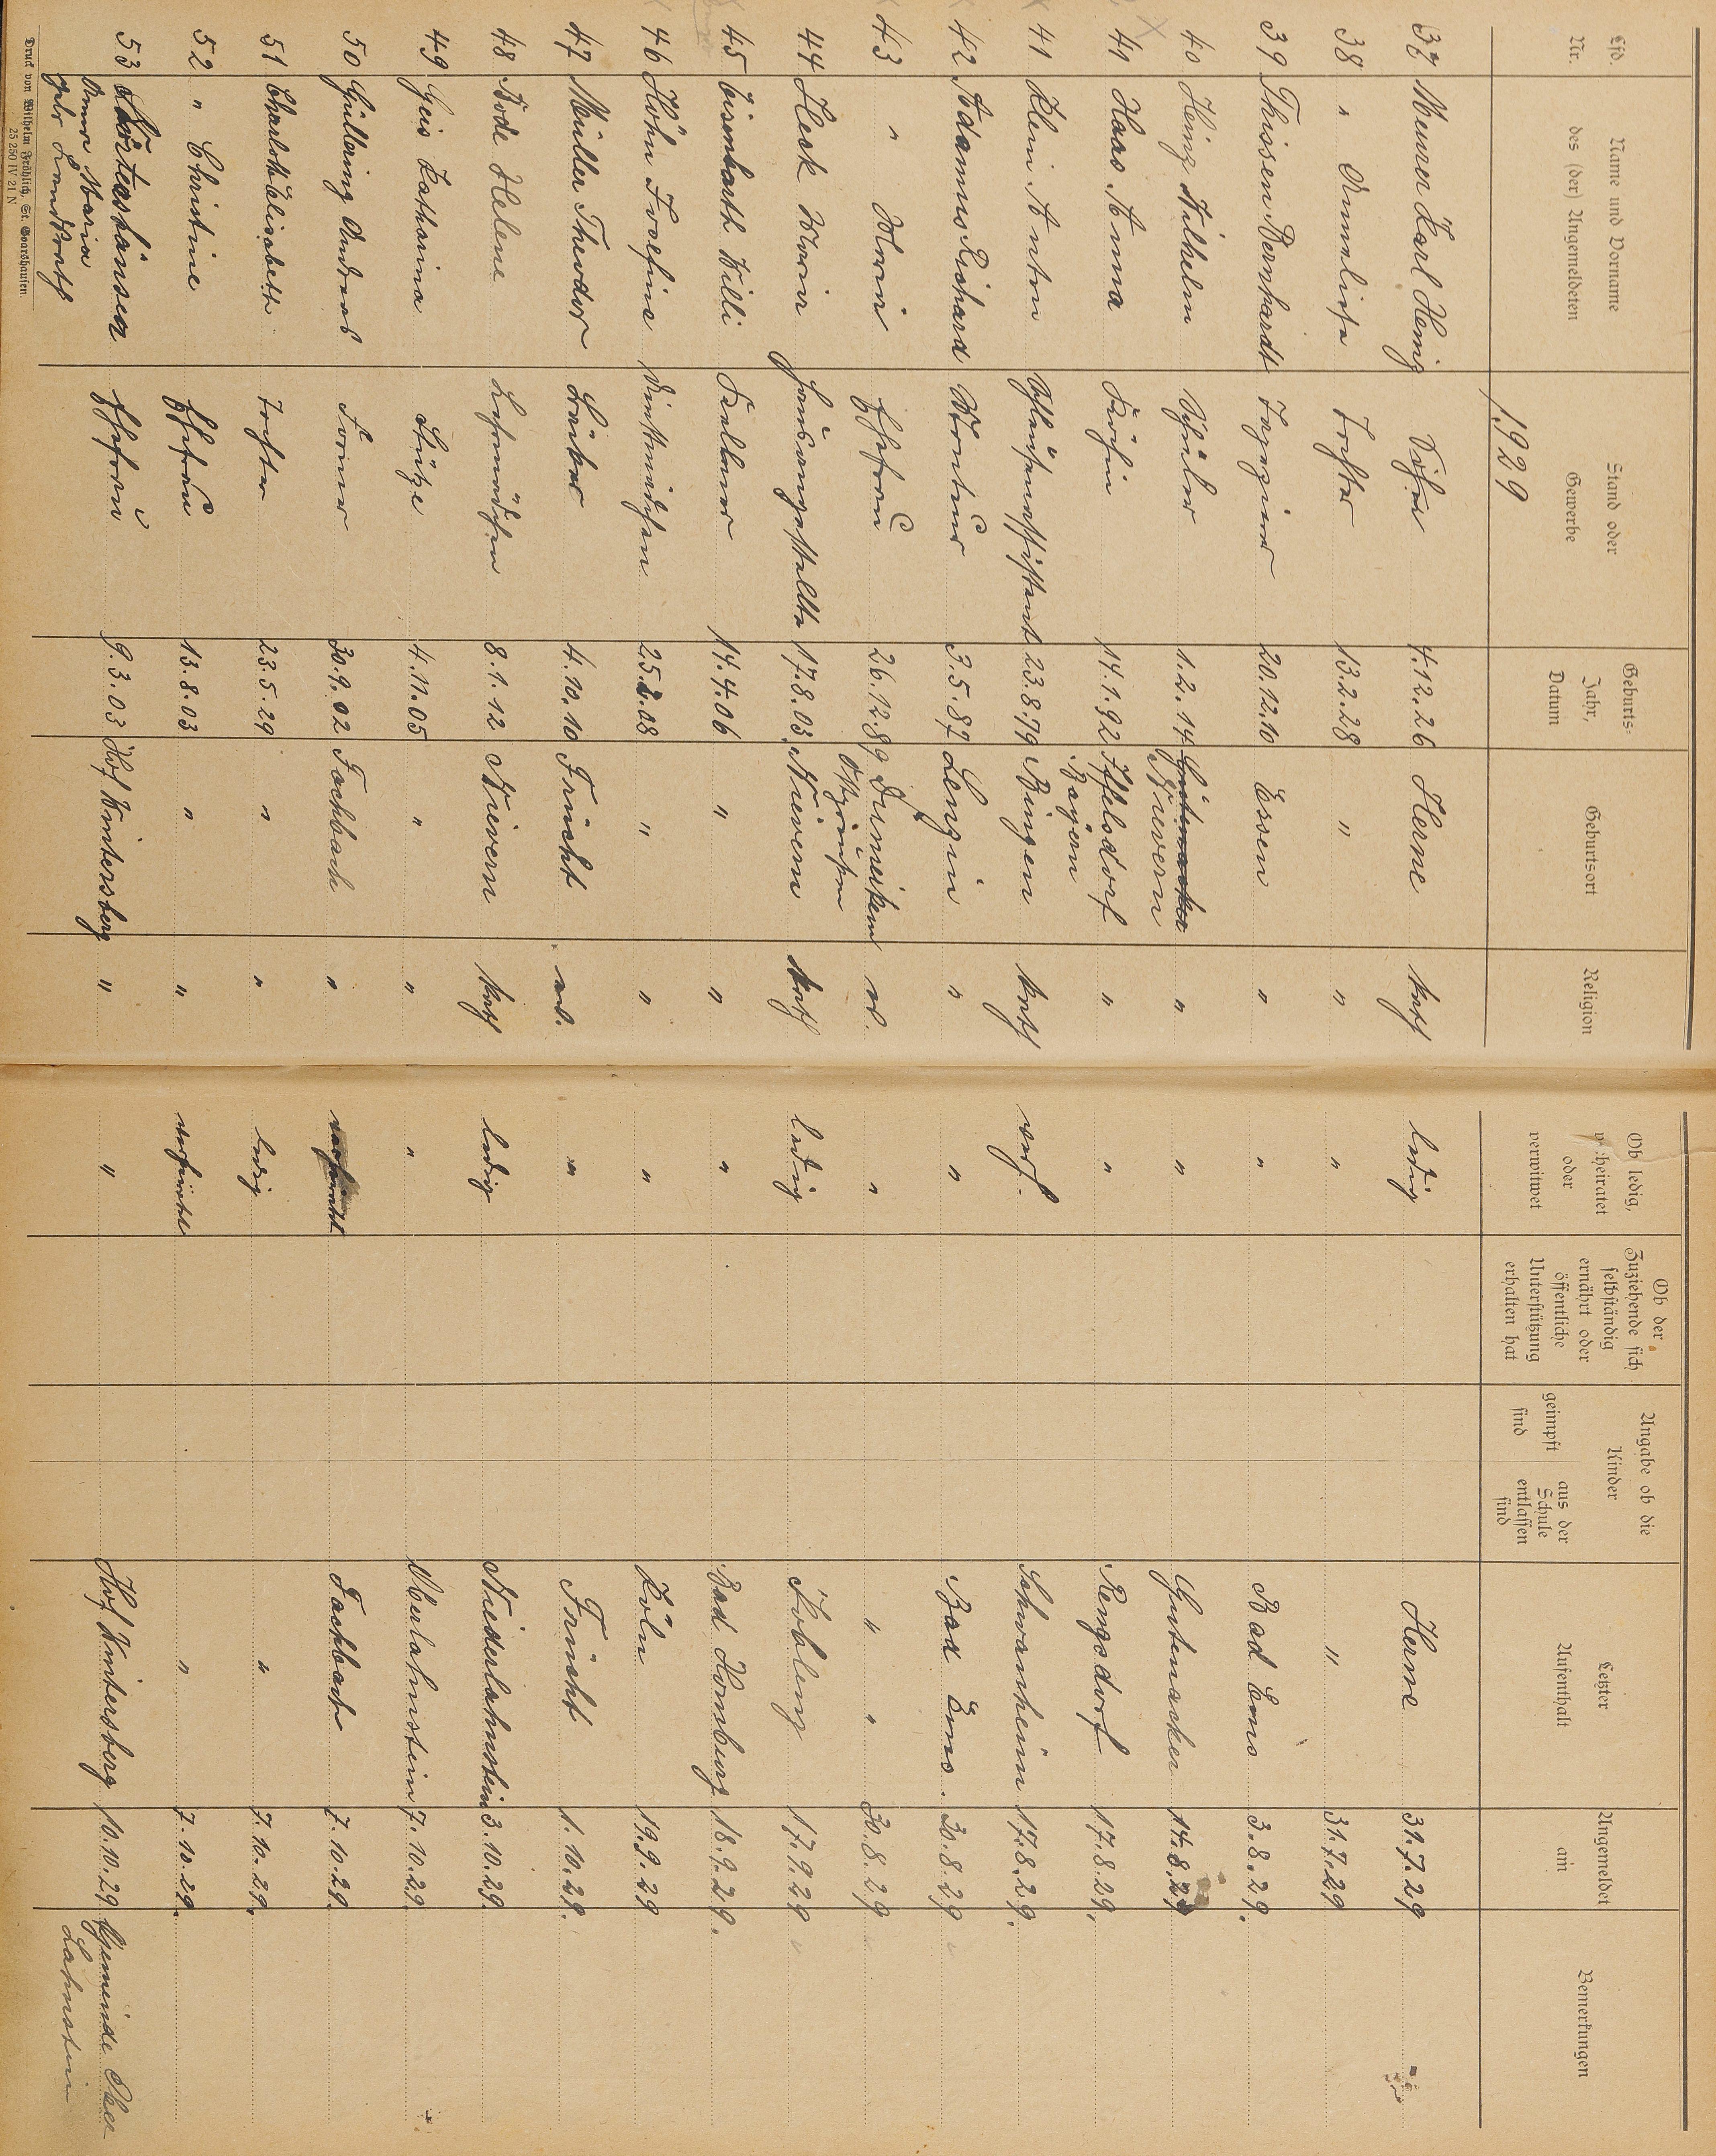 Lfd. Nr. Name und Vorname des (der) Angemeldeten Stand oder Gewerbe Geburts- Jahr, Datum Geburtsort Religion Ob ledig, verheiratet oder verwitwet Ob der Zuziehende sich selbständig ernährt oder öffentliche Unterstützung erhalten hat Angabe ob die Kinder geimpft sind aus der Schule entlassen sind Letzter Aufenthalt Angemeldet am Bemerkungen
1929
37 Karl Heinz Sohn 4.12.26 Herne kath ledig Herne 31.7.29
38 " Annaliese Tochter 13.2.28 " " " " 31.7.29
39 Thissen Bernhardt 20.12.10 Essen " " Bad Ems 3.8.29.
40 Heinz Wilhelm Schüler 1.2.14 Nievern " " Gutenacker 14.8.29
41 Haas Anna Köchin 14.1.92 Bayern " " Rengsdorf 17.8.29.
41 Klein Anton 23.8.79 Bingen kath verh. Schwanheim 17.8.29.
42 Adamns Richard Monteur 3.5.87 " " Bad Ems. 30.8.29
43 " Maria Ehefrau 26.12.89 Ostpreußen ev. " " " 30.8.29
44 Heck Maria Hausangestellte 17.8.03. Nievern kath ledig Koblenz 17.9.29
45 Eisenbarth Willi Kellner 14.4.06 " " " Bad Homburg 18.9.29.
46 Höhn Josefine Dienstmädchen 25.2.08 " " " Köln 19.9.29
47 Müller Theodor 4.10.10 Frücht ev. " Frücht 1.10.29.
48 Bode Helene Lehrmädchen 8.1.12 Nievern kath ledig Niederlahnstein 3.10.29.
49 Geis Katharina Stütze 4.11.05 " " " Oberlahnstein 7.10.29.
50 Güllering Andreas Former 30.9.02 Fachbach " verheiratet Fachbach 7.10.29.
51 " Charlotte Elisabeth Tochter 23.5.29 " " ledig " 7.10.29.
52 " Christine Ehefrau 13.8.03 " " verheiratet " 7.10.29.
53 Ehefrau 9.3.03 Hof Wintersberg " " Hof Wintersberg 10.10.29 Gemeinde Ober-
Anna Maria Lahnstein
geb.
Druck von Wilhelm Fröhlich, St. Goarshausen.
25 250 IV 21 N